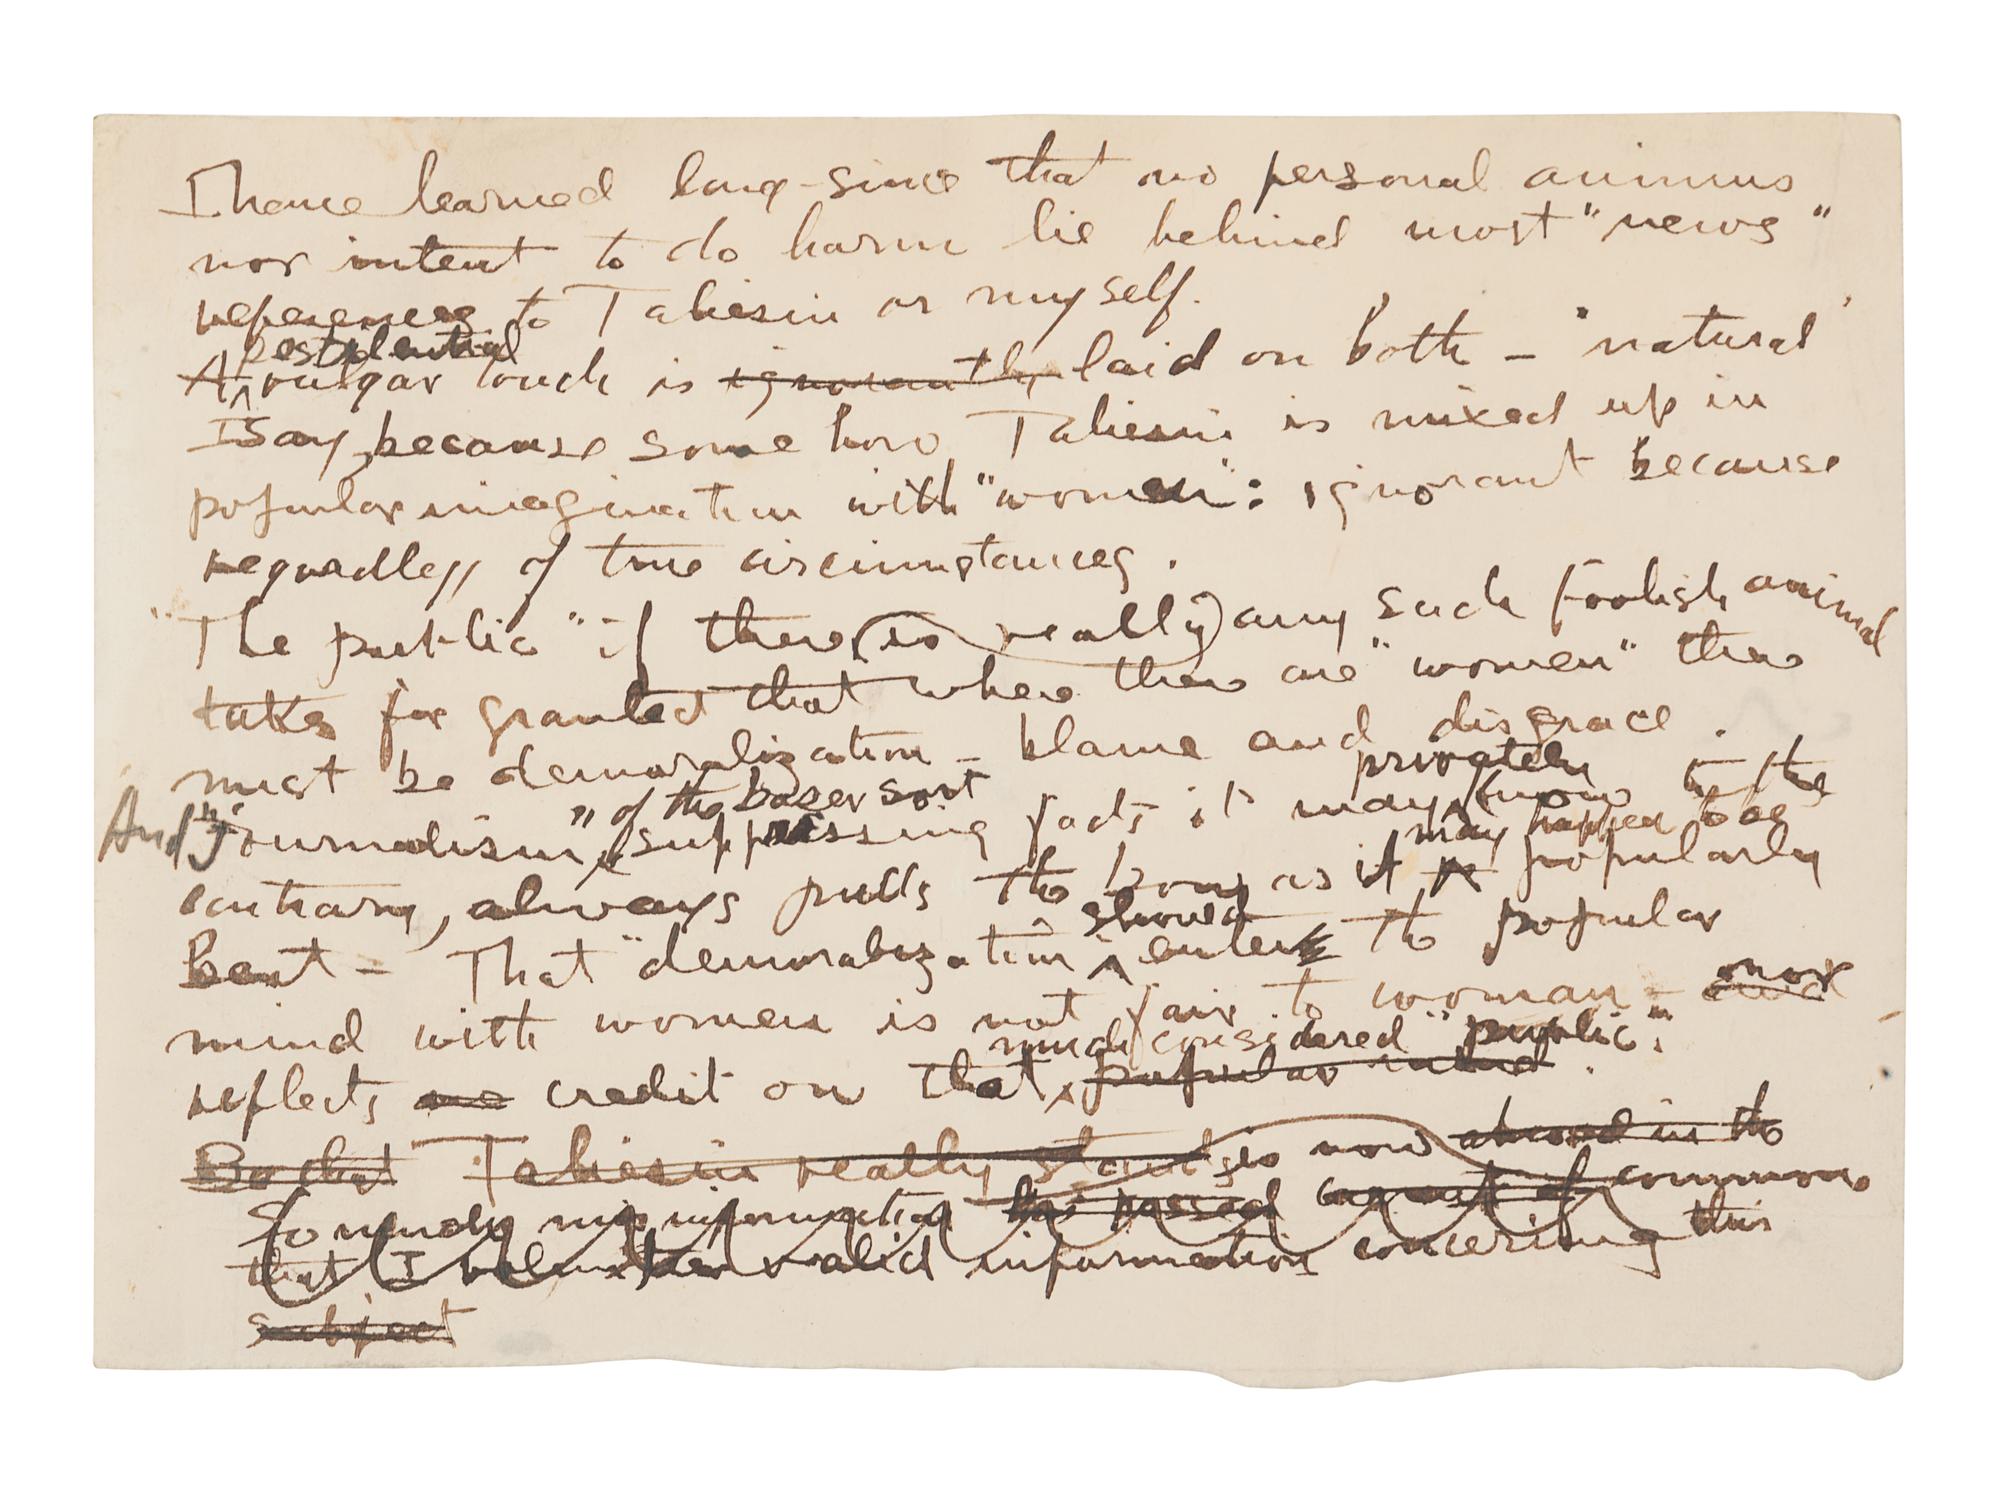 I have learned long-since that no personal animus
nor intent to do harm lie behind most "news"
references to Taliesin or myself.
pestilential
A vulgar touch is ignorantly laid on both – 'natural'
I say, because some how Taliesin is mixed up in
popular imagination with "women": ignorant because
regardless of true circumstances.
"The public" if there (is really) any such foolish animal
takes for granted that where there are "women" there
must be demoralization – blame and disgrace.
privately
of the baser sort
And "journalism" suppressing facts it may know to the
may happen to be
contrary, always pulls the bow as it is popularly
should
Bent – That "demoralization enters the popular
mind with women is not fair to woman – nor
much considered "public".
reflects no credit on that popular mind.
Taliesin really stands is now abroad in the
So much misinformation has passed common
that I volunteer valid information concerning this
subject